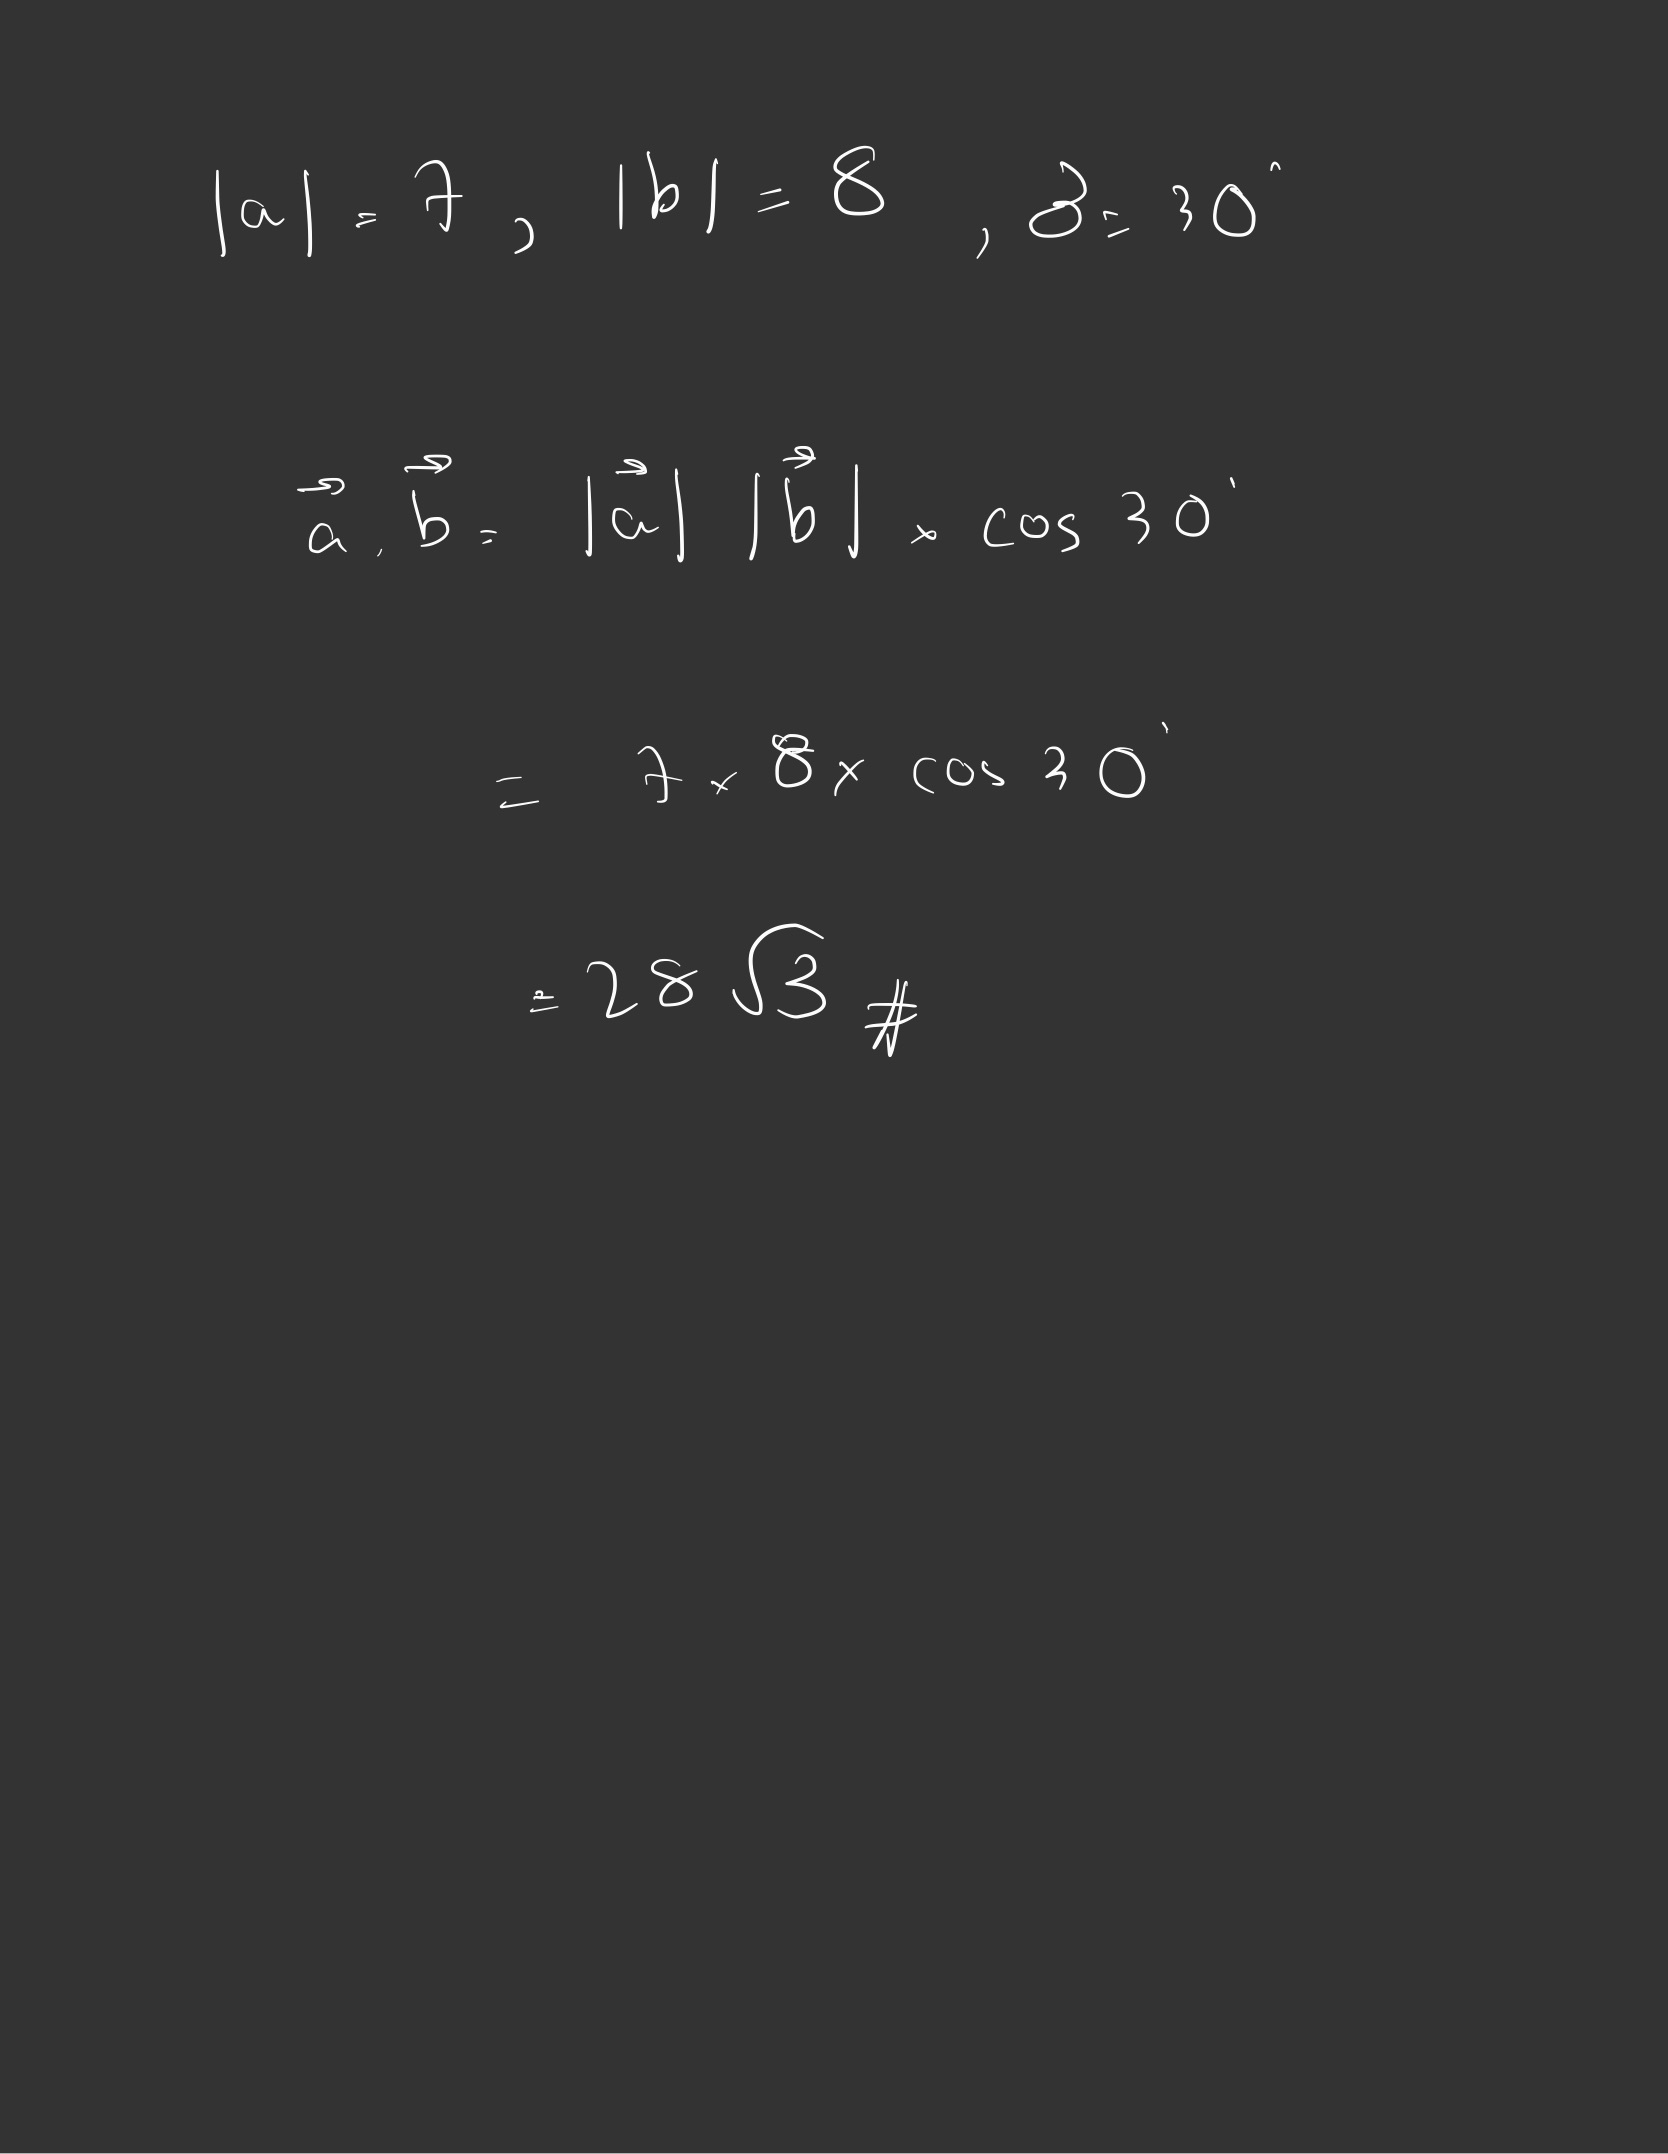 |a| = 7, |b| = 8, ∂ = 30°
a⃗ . b⃗ = |a⃗| |b⃗| × cos 30°
= 7 × 8 × cos 30°
= 28 √3 #